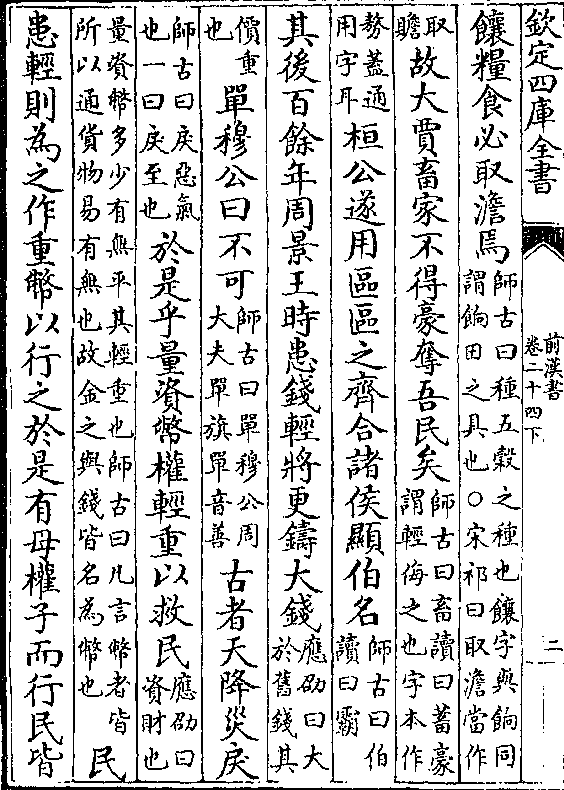 欽定四庫全書
前漢書
卷二十四下
二
饟糧食必取澹焉師古曰種五穀之種也饟字與餉同謂餉田之具也○宋祁曰取澹當作
取贍故大賈畜家不得豪奪吾民矣師古曰畜讀曰蓄豪謂輕侮之也字本作
𠢕蓋通用字耳桓公遂用區區之齊合諸侯顯伯名師古曰伯讀曰霸
其後百餘年周景王時患錢輕將更鑄大錢應劭曰大於舊錢其
價重也單穆公曰不可師古曰單穆公周大夫單旗單音善古者天降災戾
師古曰戾惡氣也一曰戾至也於是乎量資幣權輕重以救民應劭曰資財也
量資幣多少有無平其輕重也師古曰凡言幣者皆所以通貨物易有無也故金之與錢皆名為幣也民
患輕則為之作重幣以行之於是有母權子而行民皆